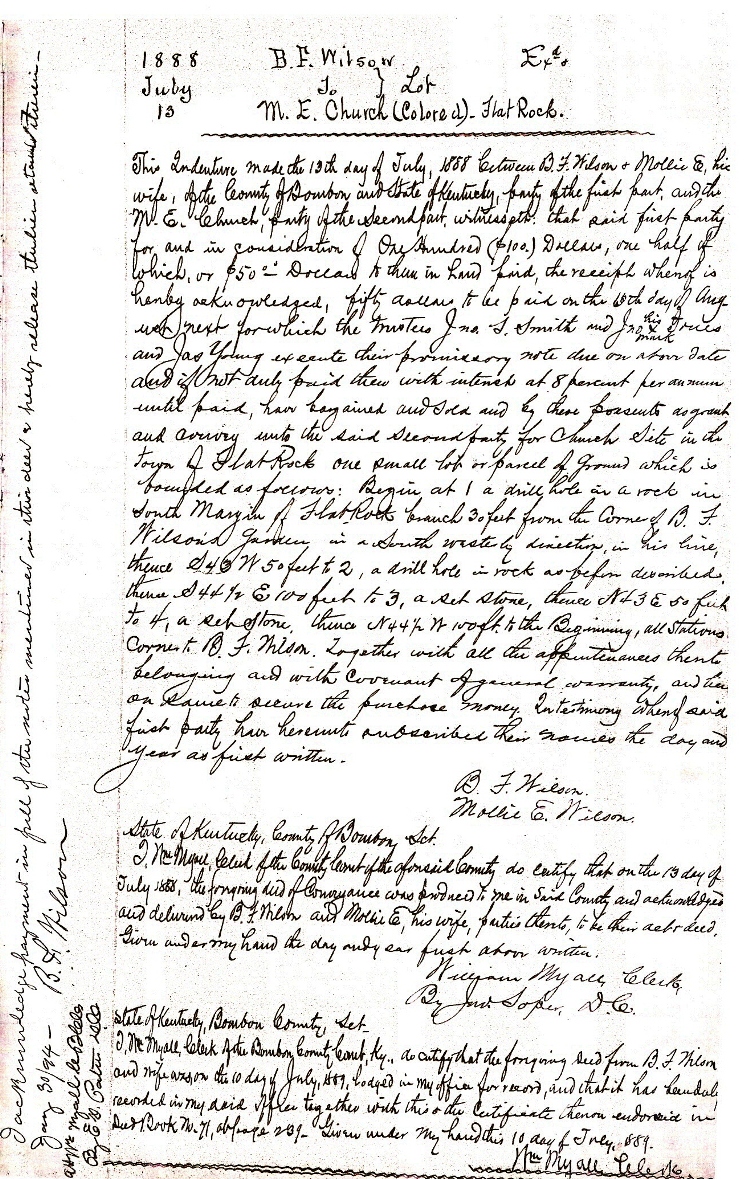 1888 B. F. Wilson Exd.
July To } Lot
13 M. E. Church (Colored) - Flat Rock.
This Indenture made the 13th day of July, 1888 between B. F. Wilson & Mollie E, his
wife, of the County of Bourbon and State of Kentucky, party of the first part, and the
M. E. Church, party of the second part, witnesseth: that said first party
for, and in consideration of One Hundred ($100.) Dollars, one half of
which, or $50 Dollars to them in hand paid, the receipt whereof is
hereby acknowledged, fifty dollars to be paid on the day of Aug
next for which the trustees Jno. T. Smith and Jno his x mark Jones
and Jas Young execute their promissory note due on above date
and if not duly paid then with interest at 8 percent per annum
until paid, have bargained and sold and by these presents do grant
and convey unto the said second party for Church Site in the
Town of Flat Rock one small lot or parcel of Ground which is
bounded as follows: Begin at 1 a drill hole in a rock in
South Margin of Flat Rock branch 30 feet from the Corner of B. F.
Wilson's Garden in a South westerly direction, in his line,
thence S43 W 50 feet to 2, a drill hole in rock as before described,
thence S44½ E 100 feet to 3, a set stone, thence N43 E 50 feet
to 4, a set Stone, thence N44½ W 100 ft. to the Beginning, all Stations
Corner to B. F. Wilson. Together with all the appurtenances thereto
belonging and with covenant of general warranty, and lien
on same to secure the purchase money. In testimony whereof said
first party have hereunto subscribed their names the day and
year as first written.
B. F. Wilson.
Mollie E. Wilson.
State of Kentucky, County of Bourbon, Sct.
I, Wm Myall, Clerk of the County Court of the aforesaid County do certify that on the 13 day of
July 1888, the foregoing deed of Conveyance was produced to me in Said County and acknowledged
and delivered by B. F. Wilson and Mollie E, his wife, parties thereto, to be their act & deed.
Given under my hand the day and year first above written.
William Myall, Clerk,
By Jno. Soper, D. C.
State of Kentucky, Bourbon County, Sct.
I, Wm Myall, Clerk of the Bourbon County Court, Ky., do certify that the foregoing deed from B. F. Wilson
and wife was on the 10 day of July, 1889, lodged in my office for record, and that it has been duly
recorded in my said office together with this & the Certificate thereon endorsed in
Deed Book No. 71, at page 239. Given under my hand this 10 day of July, 1889.
Wm Myall, Clerk
I acknowledge payment in full of the notes mentioned in this deed & hereby release the lien retained therein -
Jany 30/94 - B. F. Wilson
att Wm Myall
By Paton DC